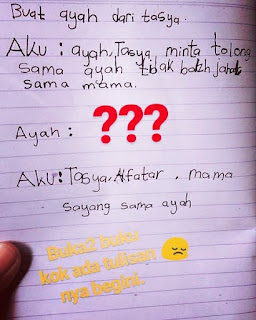 Buat ayah dari tasya.
Aku : ayah, Tasya minta tolong
sama ayah tidak boleh jahat
sama mama.
Ayah : ???
Aku : Tasya, Alfatar, mama
sayang sama ayah
Buka2 buku
kok ada tulisan
nya begini.